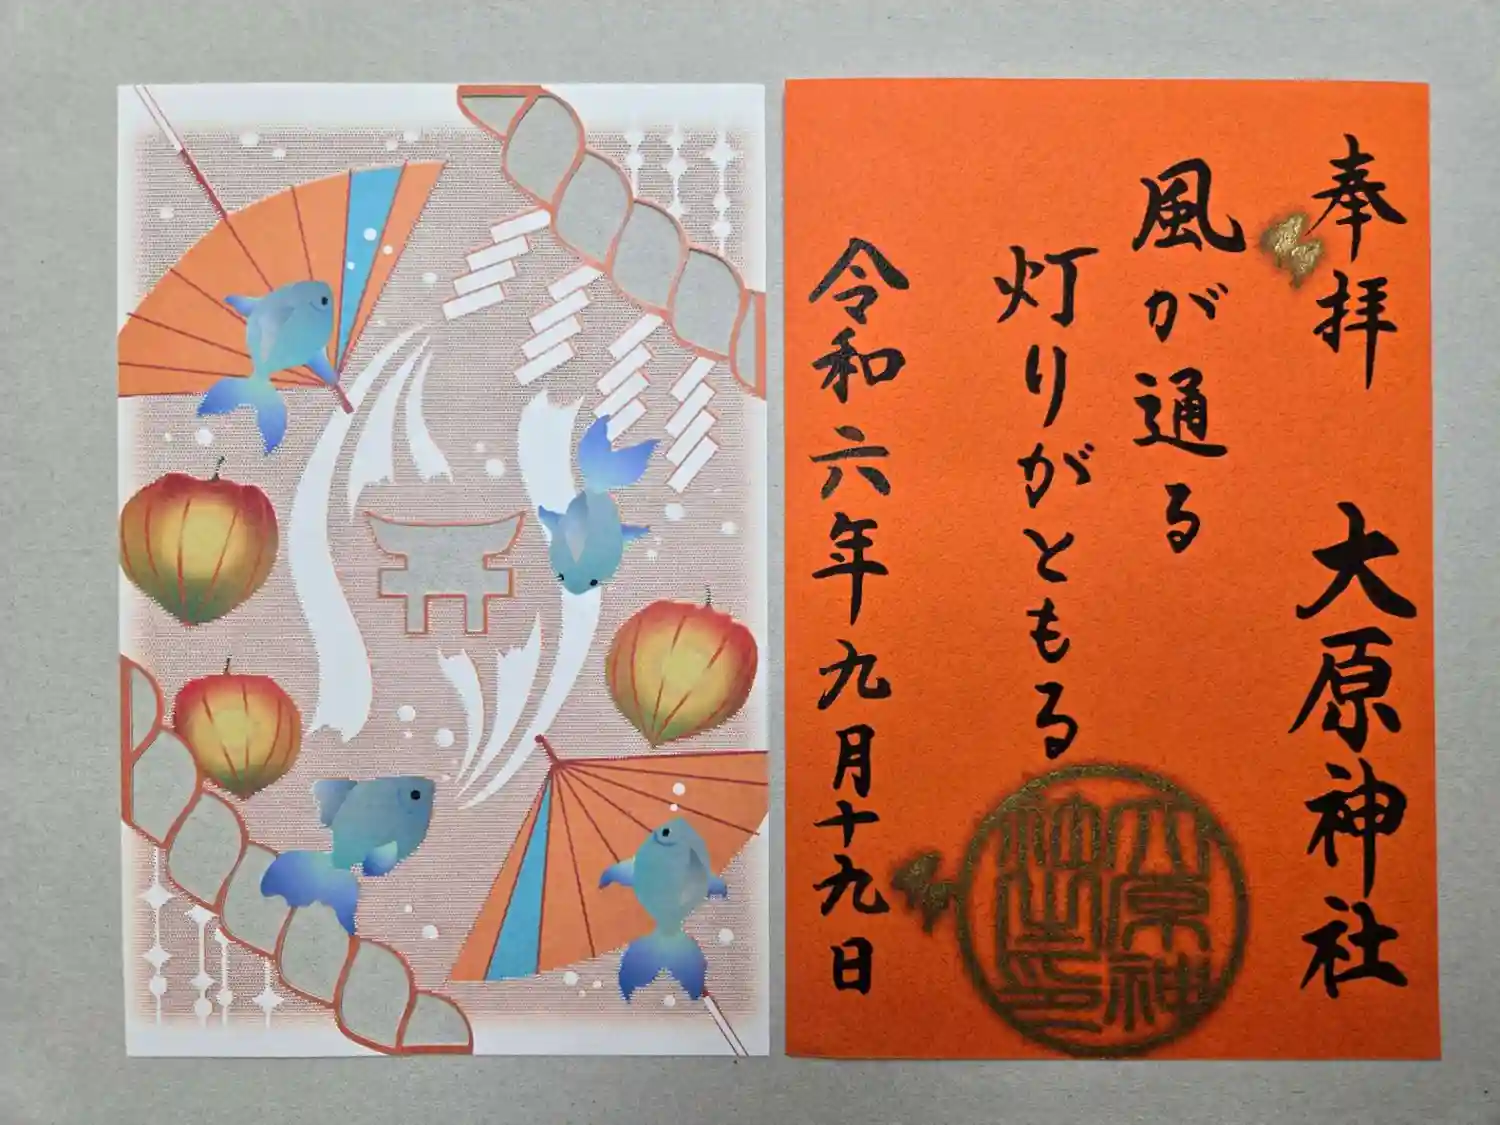 奉拝　大原神社
風が通る
灯りがともる
令和六年九月十九日
大原神
社之印